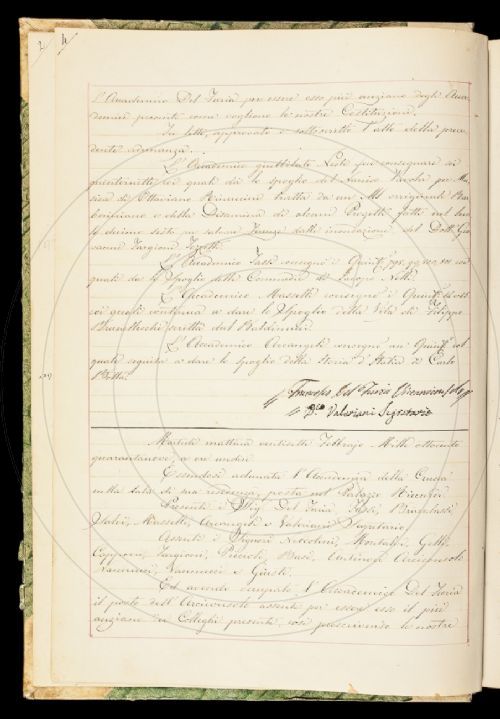 4
l'Accademico Del Furia per essere esso più anziano degli Acca-
demici presenti come vogliono le nostre Costituzioni.
Fu letto, approvato e sottoscritto l'atto della prece-
dente adunanza.
L'Accademico
consegnare
quinternetti, coi quali dà lo spoglio del Varchi per Mu-
sica di Ottaviano Rinuccini tratta da un MS originale Bar-
beriniano e della Disamina di alcuni Progetti fatti nel Seco-
lo decimo sesto per salvare Firenze dalle inondazioni del Dott. Gio-
vanni Targioni Tozzetti
L'Accademico consegnò i
quali dà lo Spoglio delle Commedie di
L'Accademico Masselli consegnò i
coi quali continua a dare lo Spoglio della Vita di Filippo
Brunelleschi scritta dal Baldinucci.
L'Accademico Arcangeli consegnò un col
quale seguita a dare lo spoglio della Storia d'Italia di Carlo
Botta.
Francesco Del Furia
Valeriani Segretario
Martedì mattina ventisette Febbrajo Mille ottocento
quarantanove, a ore undici.
Essendosi adunata l'Accademia della Crusca
nella sala di sua residenza, posta nel Palazzo Riccardi
Presenti i Sigg. Del Furia,
Masselli, Arcangeli e Valeriani Segretario.
Assenti i Signori Niccolini, Montalvi,
Capponi, Targioni, Puccioti, Antinori Arciconsolo
Vannucci e Giusti.
Ed avendo occupato l'Accademico Del Furia
il posto dell'Arciconsolo assente per essere esso il più
anziano dei Colleghi presenti, così prescrivendo le nostre